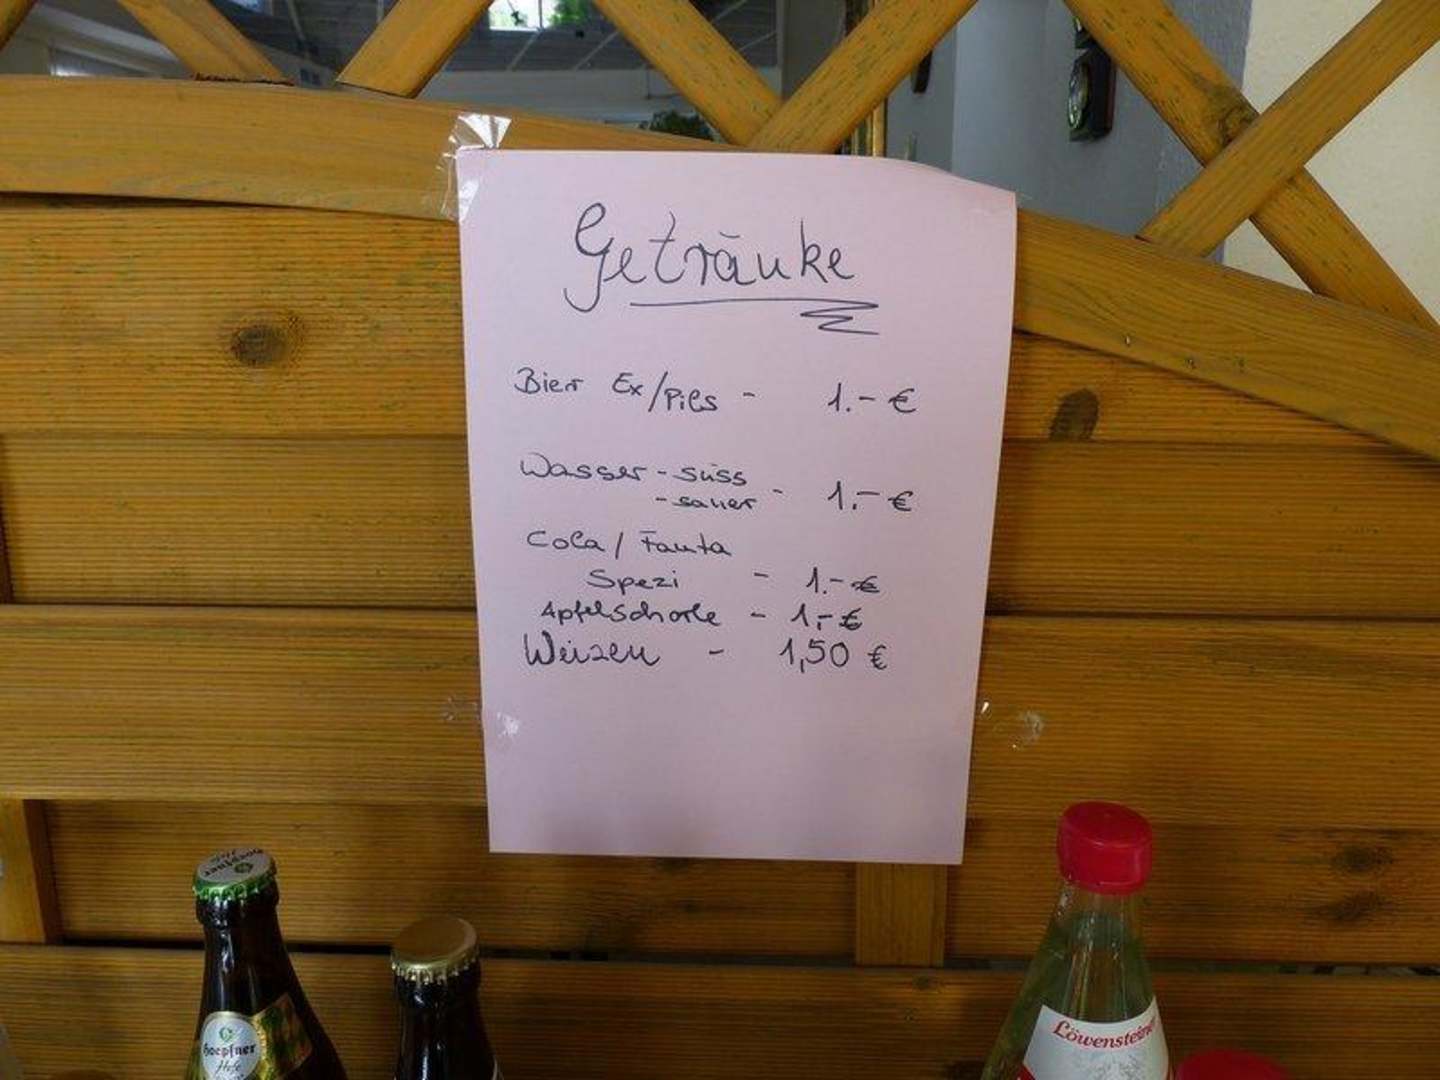 Getränke
Bier Ex/Pils - 1.- €
Wasser - süss
- sauer - 1.- €
Cola / Fanta
Spezi - 1.- €
Apfelschorle - 1,- €
Weizen - 1,50 €
Hoepfner
Hoepfner
Hefe
Löwensteiner